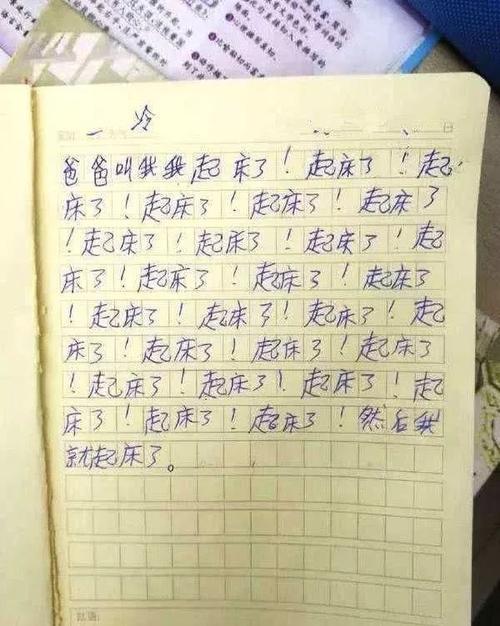 一 冷
爸爸叫我我起床了！起床了！起
床了！起床了！起床了！起床了
！起床了！起床了！起床了！起
床了！起床了！起床了！起床了
！起床了！起床了！起床了！起
床了！起床了！起床了！起床了
！起床了！起床了！起床了！起
床了！起床了！起床了！然后我
就起床了。